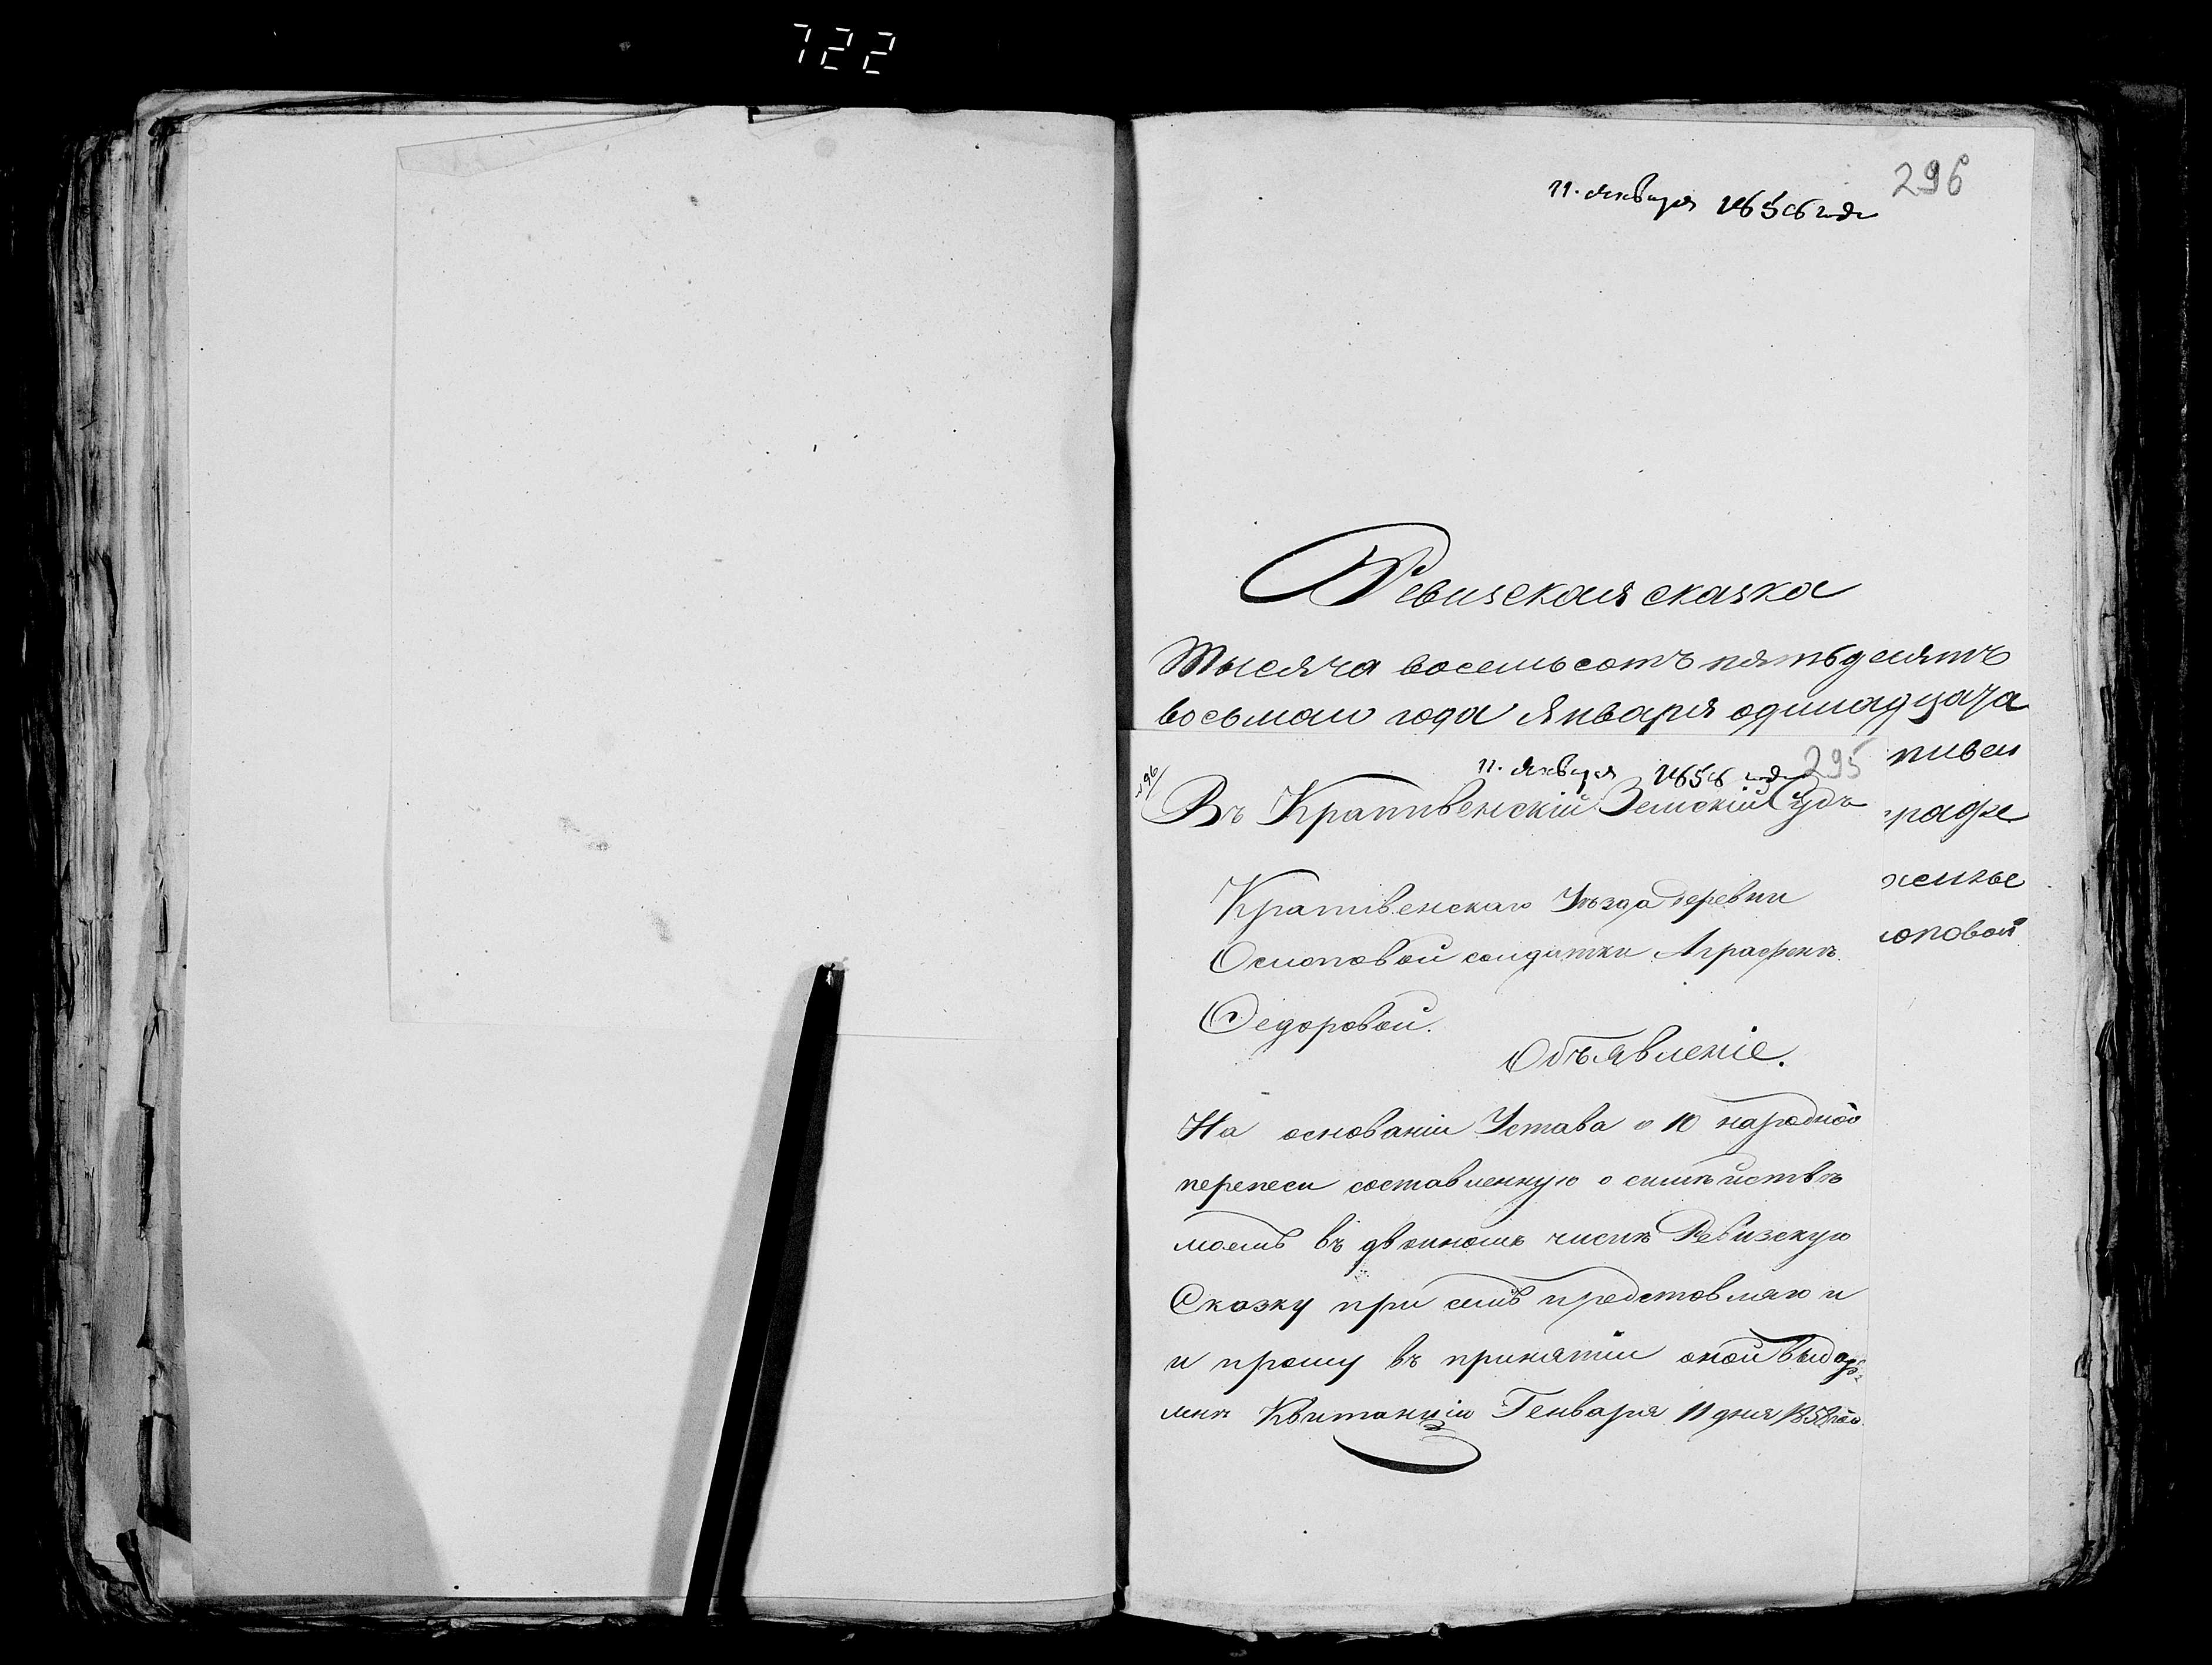 722
11. января 1858 года
296
Ревизская сказка
Тысяча восемьсотъ пятьдесятъ
восьмаго года Января одинадцата
пивен
рафе
женье
оповой
295
11. января 1858 года
Въ Крапивенскій Земскій Судъ
Крапивенскаго Уѣзда деревни
Осиповой солдатки Аграфены
Федоровой.
Объявленіе.
На основаніи Устава о 10 народной
переписи составленную о симѣйствѣ
моемъ въ двоиномъ числѣ Ревизскую
Сказку при семъ представляю и
и прошу въ принятіи оной выдать
мнѣ Квитанцію Генваря 11 дня 1858 год.